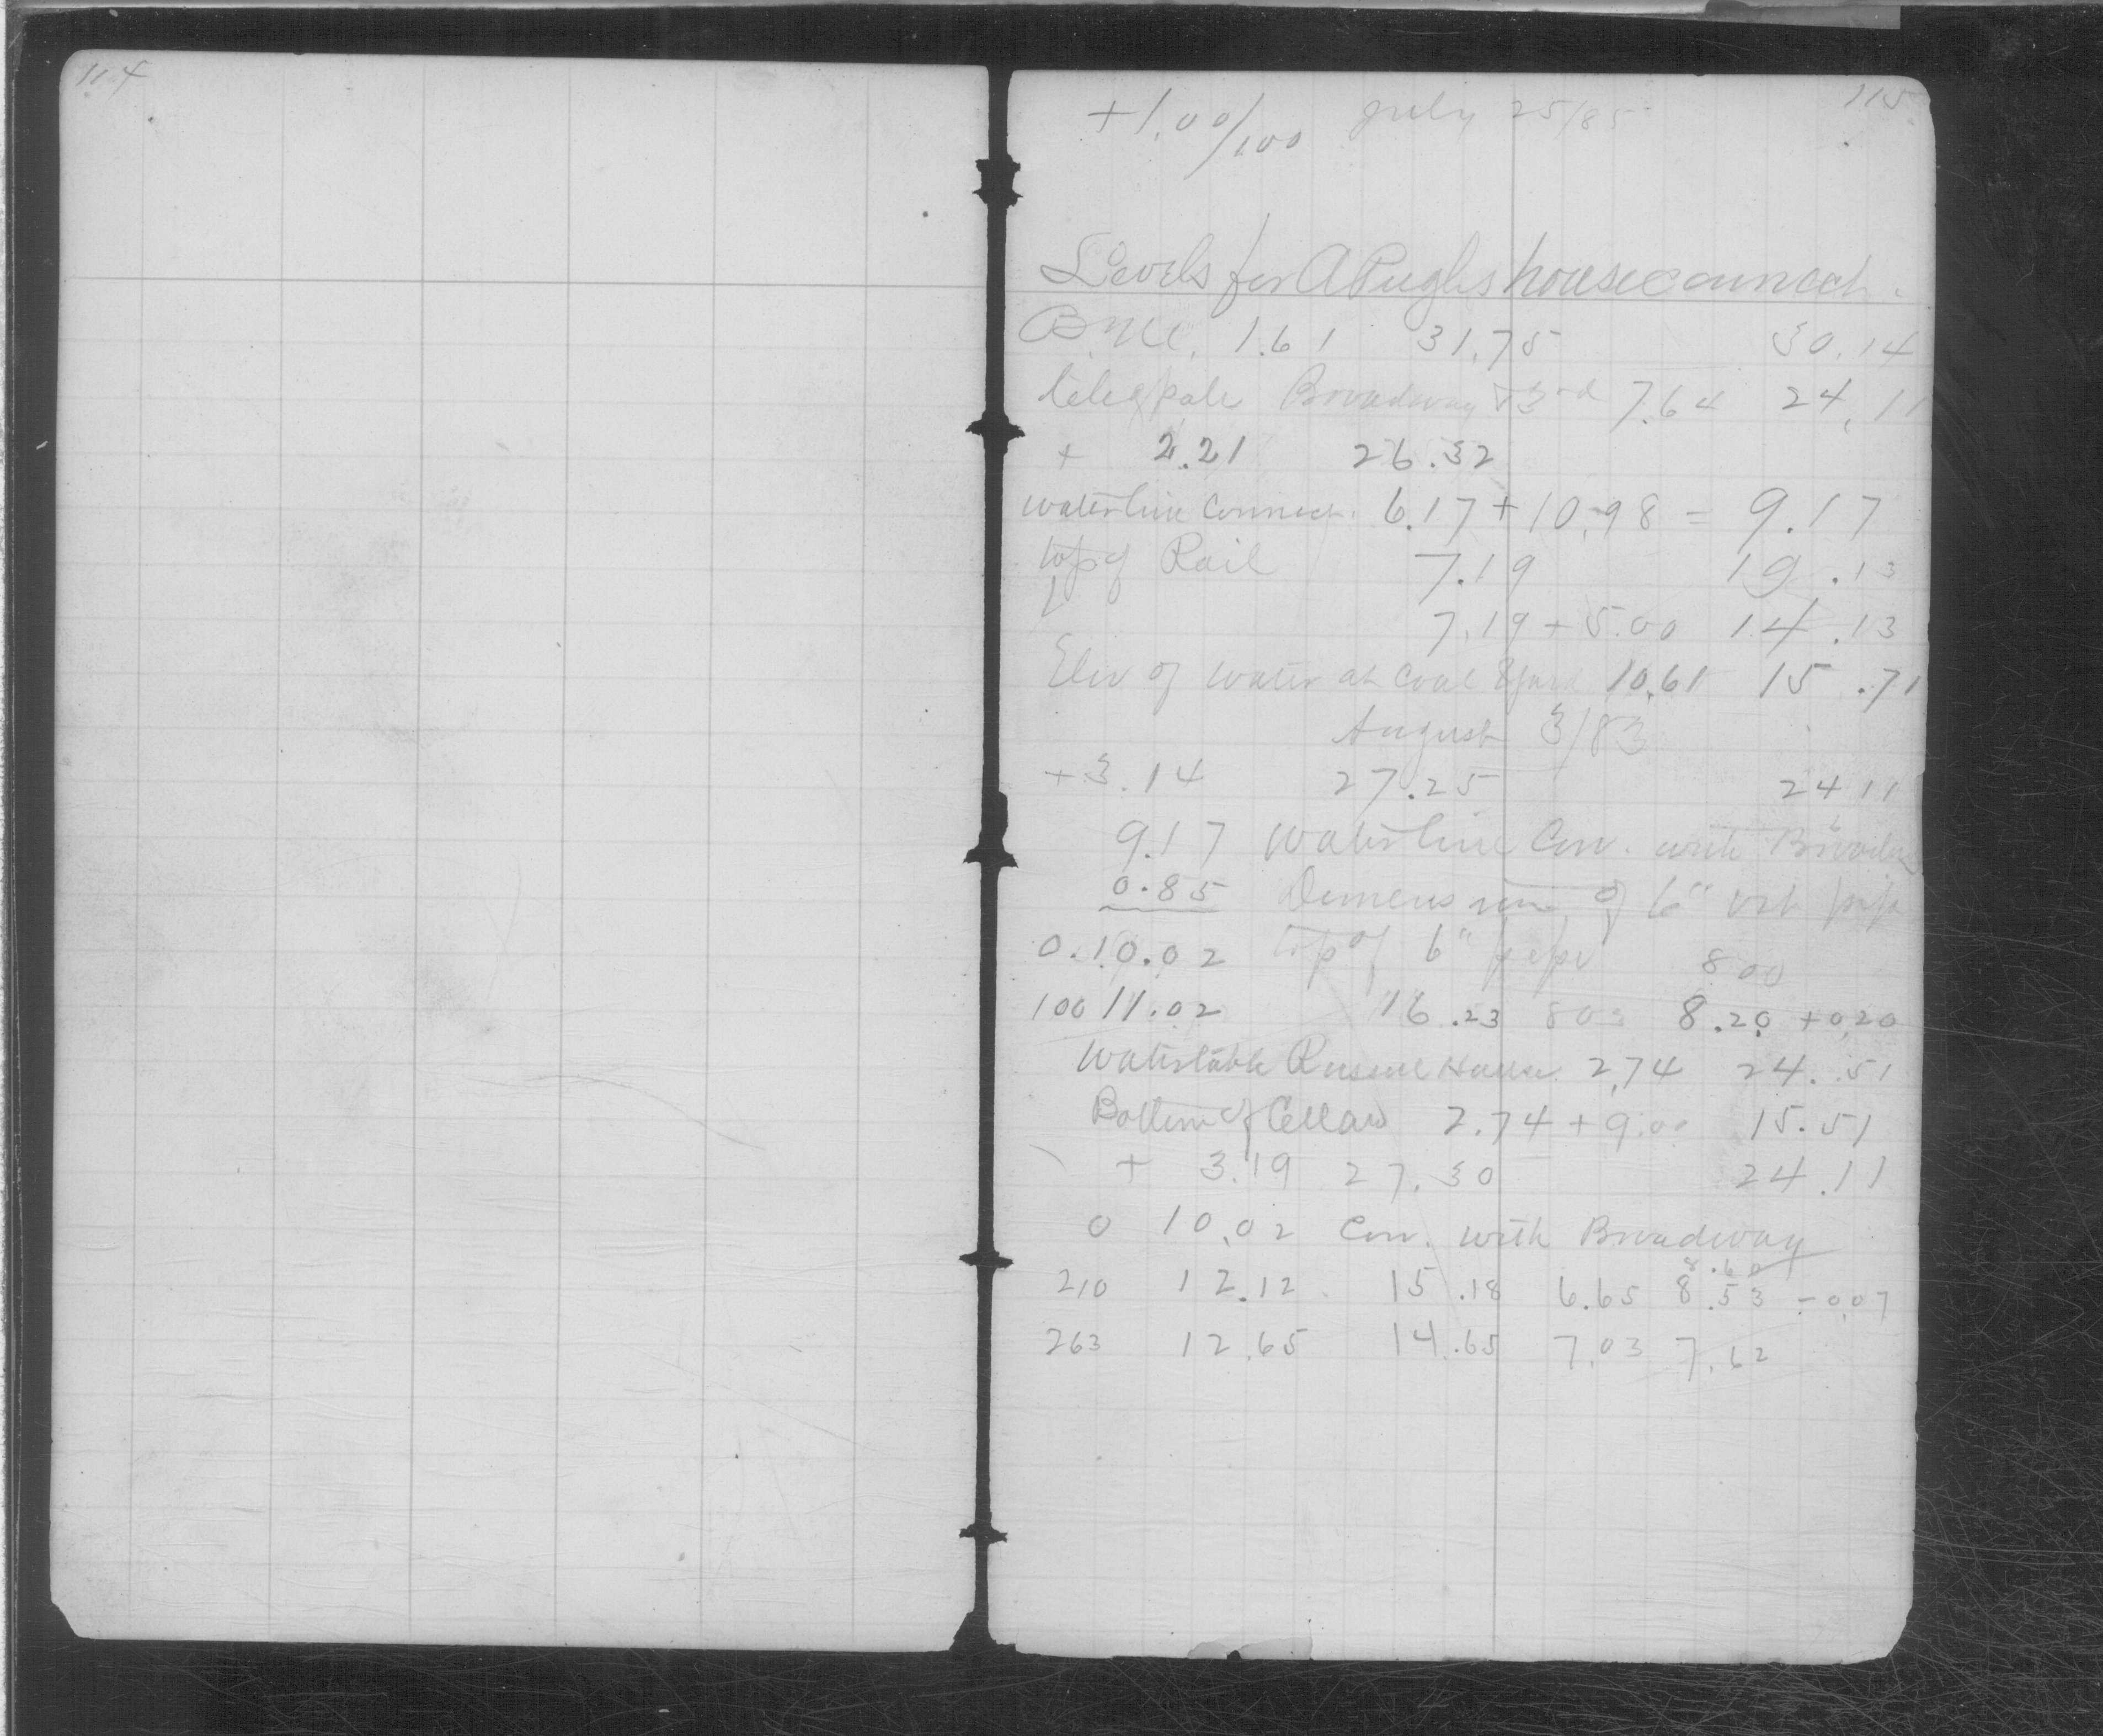 114
115
+1.00/100 July 25/85
Levels for A Pughs house connect.
B.M. 1.61 31.75 30.14
teleg pole Broadway + 3rd 7.64 24.11
+ 2.21 26.32
waterline Connect. 6.17 + 10.98 = 9.17
top of Rail 7.19 19.13
7.19 + 5.00 14.13
Elev of water at Coal Yard 10.61 15.71
August 3/83
+3.14 27.25 24.11
9.17 Waterline Con. with
0.85 of 6" pipe
0. 10.02 top of 6" pipe 8.00
100 11.02 16.23 803 8.20 +0.20
Watertable House 2.74 24.51
Bottom of Cellar 2.74 + 9.00 15.51
+ 3.19 27.30 24.11
0 10.02 Con. with Broadway
8.60
210 12.12 15.18 6.65 8.53 -0.07
263 12.65 14.65 7.03 7.62